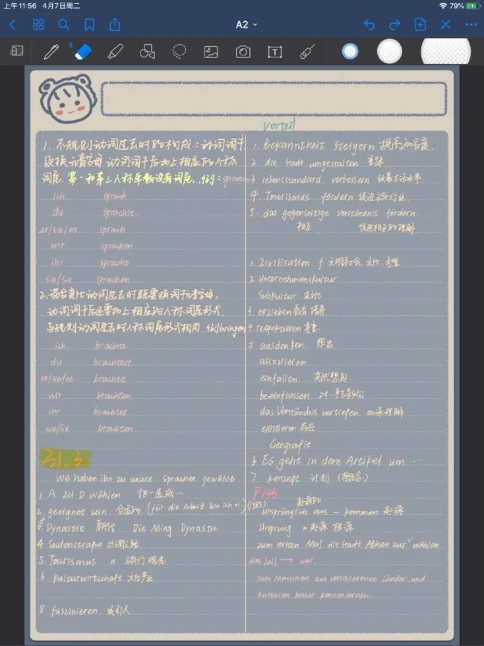 上午11:56 4月7日周二
79%
A2
1. 不规则动词过去时的构成：动词词干
该换元音 动词词干后加上相应的人称
词尾 第一和第三人称单数没有词尾,例: sprechen
ich sprach
du sprachst
er/sie/es sprach
wir sprachen
ihr spracht
sie/Sie sprachen
2. 混合变化动词过去时既要换词干
动词词干后还要加上相应的人称词尾形式
与规则动词过去时人称词尾形式相同 例/bringen
ich brachte
du brachtest
er/sie/es brachte
wir brachten
ihr brachtet
sie/Sie brachten
31.3
We haben ihn zu unsere Spracher gewählt
1 A zu D wählen
2. geeignet sein 合适的 (für die Arbeit bin ich n)
3 Dynastie 朝代 Die Ming Dynastie
4 Seidenstraße 丝绸之路
5 Tourismus n 旅行
6 Kulturwirtschaft 文化产业
8 faszinieren 吸引人
Vorteil
1. Bekanntheit steigern 提高知名度
2. die Stadt umgestalten 重塑
3. lebensstandard verbessern
4. Tourismus fördern 促进旅行业
5 das gegenseitige Verständnis fördern
相互 促进相互的理解
1. Zivilisation f
2. Unternehmenskultur
Subkultur 亚文化
3. erziehen 教育 培养
4 respektieren 尊重
5 ausdenken 想出
assoziieren
einfallen 突然想起
beeinflussen 对…有影响
das Verständnis vertiefen 加深理解
existieren 存在
Geografie
6 Es geht in dem Artikel um ...
7 konzept 计划 (概念)
P146
ursprünglich aus - kommen 起源
Ursprung n 起源
zum ersten Mal die Stadt Athen zur ~ wählen
das soll → war.
zum Menschen aus verschiedenen Länder und
Kulturen besser kennenlernen